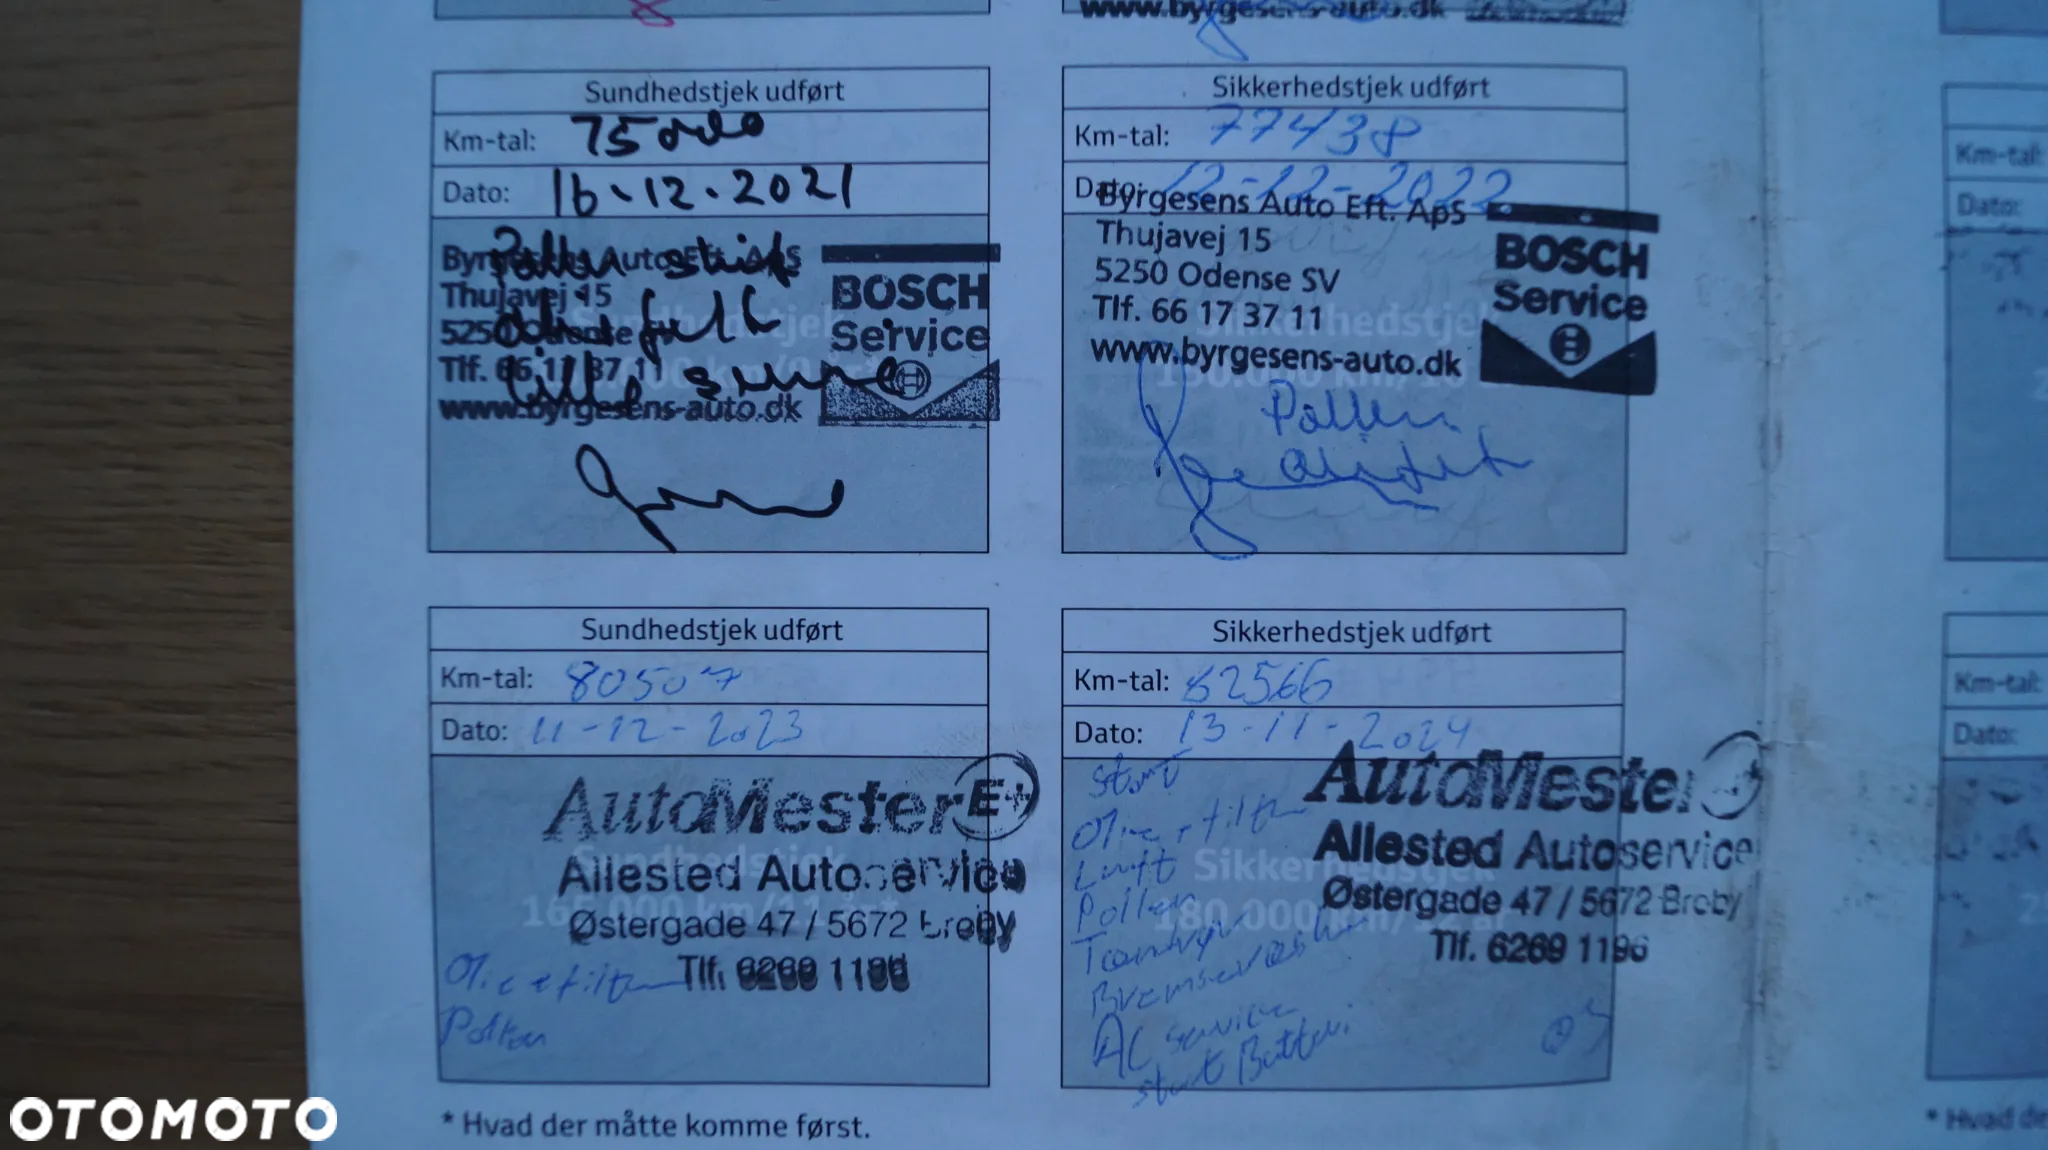 www.byrgesens-auto.dk
Sundhedstjek udført
Km-tal: 75000
Dato: 16-12-2021
Pollen skift
Byrgesens Auto Eft. ApS
Thujavej 15
5250 Odense SV
Tlf. 66 17 37 11
www.byrgesens-auto.dk
lille service
BOSCH
Service
Sikkerhedstjek udført
Km-tal: 77438
Dato: 12-12-2022
Byrgesens Auto Eft. ApS
Thujavej 15
5250 Odense SV
Tlf. 66 17 37 11
www.byrgesens-auto.dk
BOSCH
Service
Sikkerhedstjek
Pollen
Sundhedstjek udført
Km-tal: 80507
Dato: 11-12-2023
AutoMester E+
Allested Autoservice
Østergade 47 / 5672 Broby
Tlf. 6269 1196
Sundhedstjek
Olie + filter
Pollen
Sikkerhedstjek udført
Km-tal: 82566
Dato: 13-11-2024
Stort
AutoMester
Allested Autoservice
Østergade 47 / 5672 Broby
Tlf. 6269 1196
Sikkerhedstjek
180.000 km/
Olie + filter
Luft
Pollen
Bremsevæske
AC service
start Batteri
* Hvad der måtte komme først.
Km-tal:
Dato:
Km-tal:
Dato:
* Hvad de
OTOMOTO